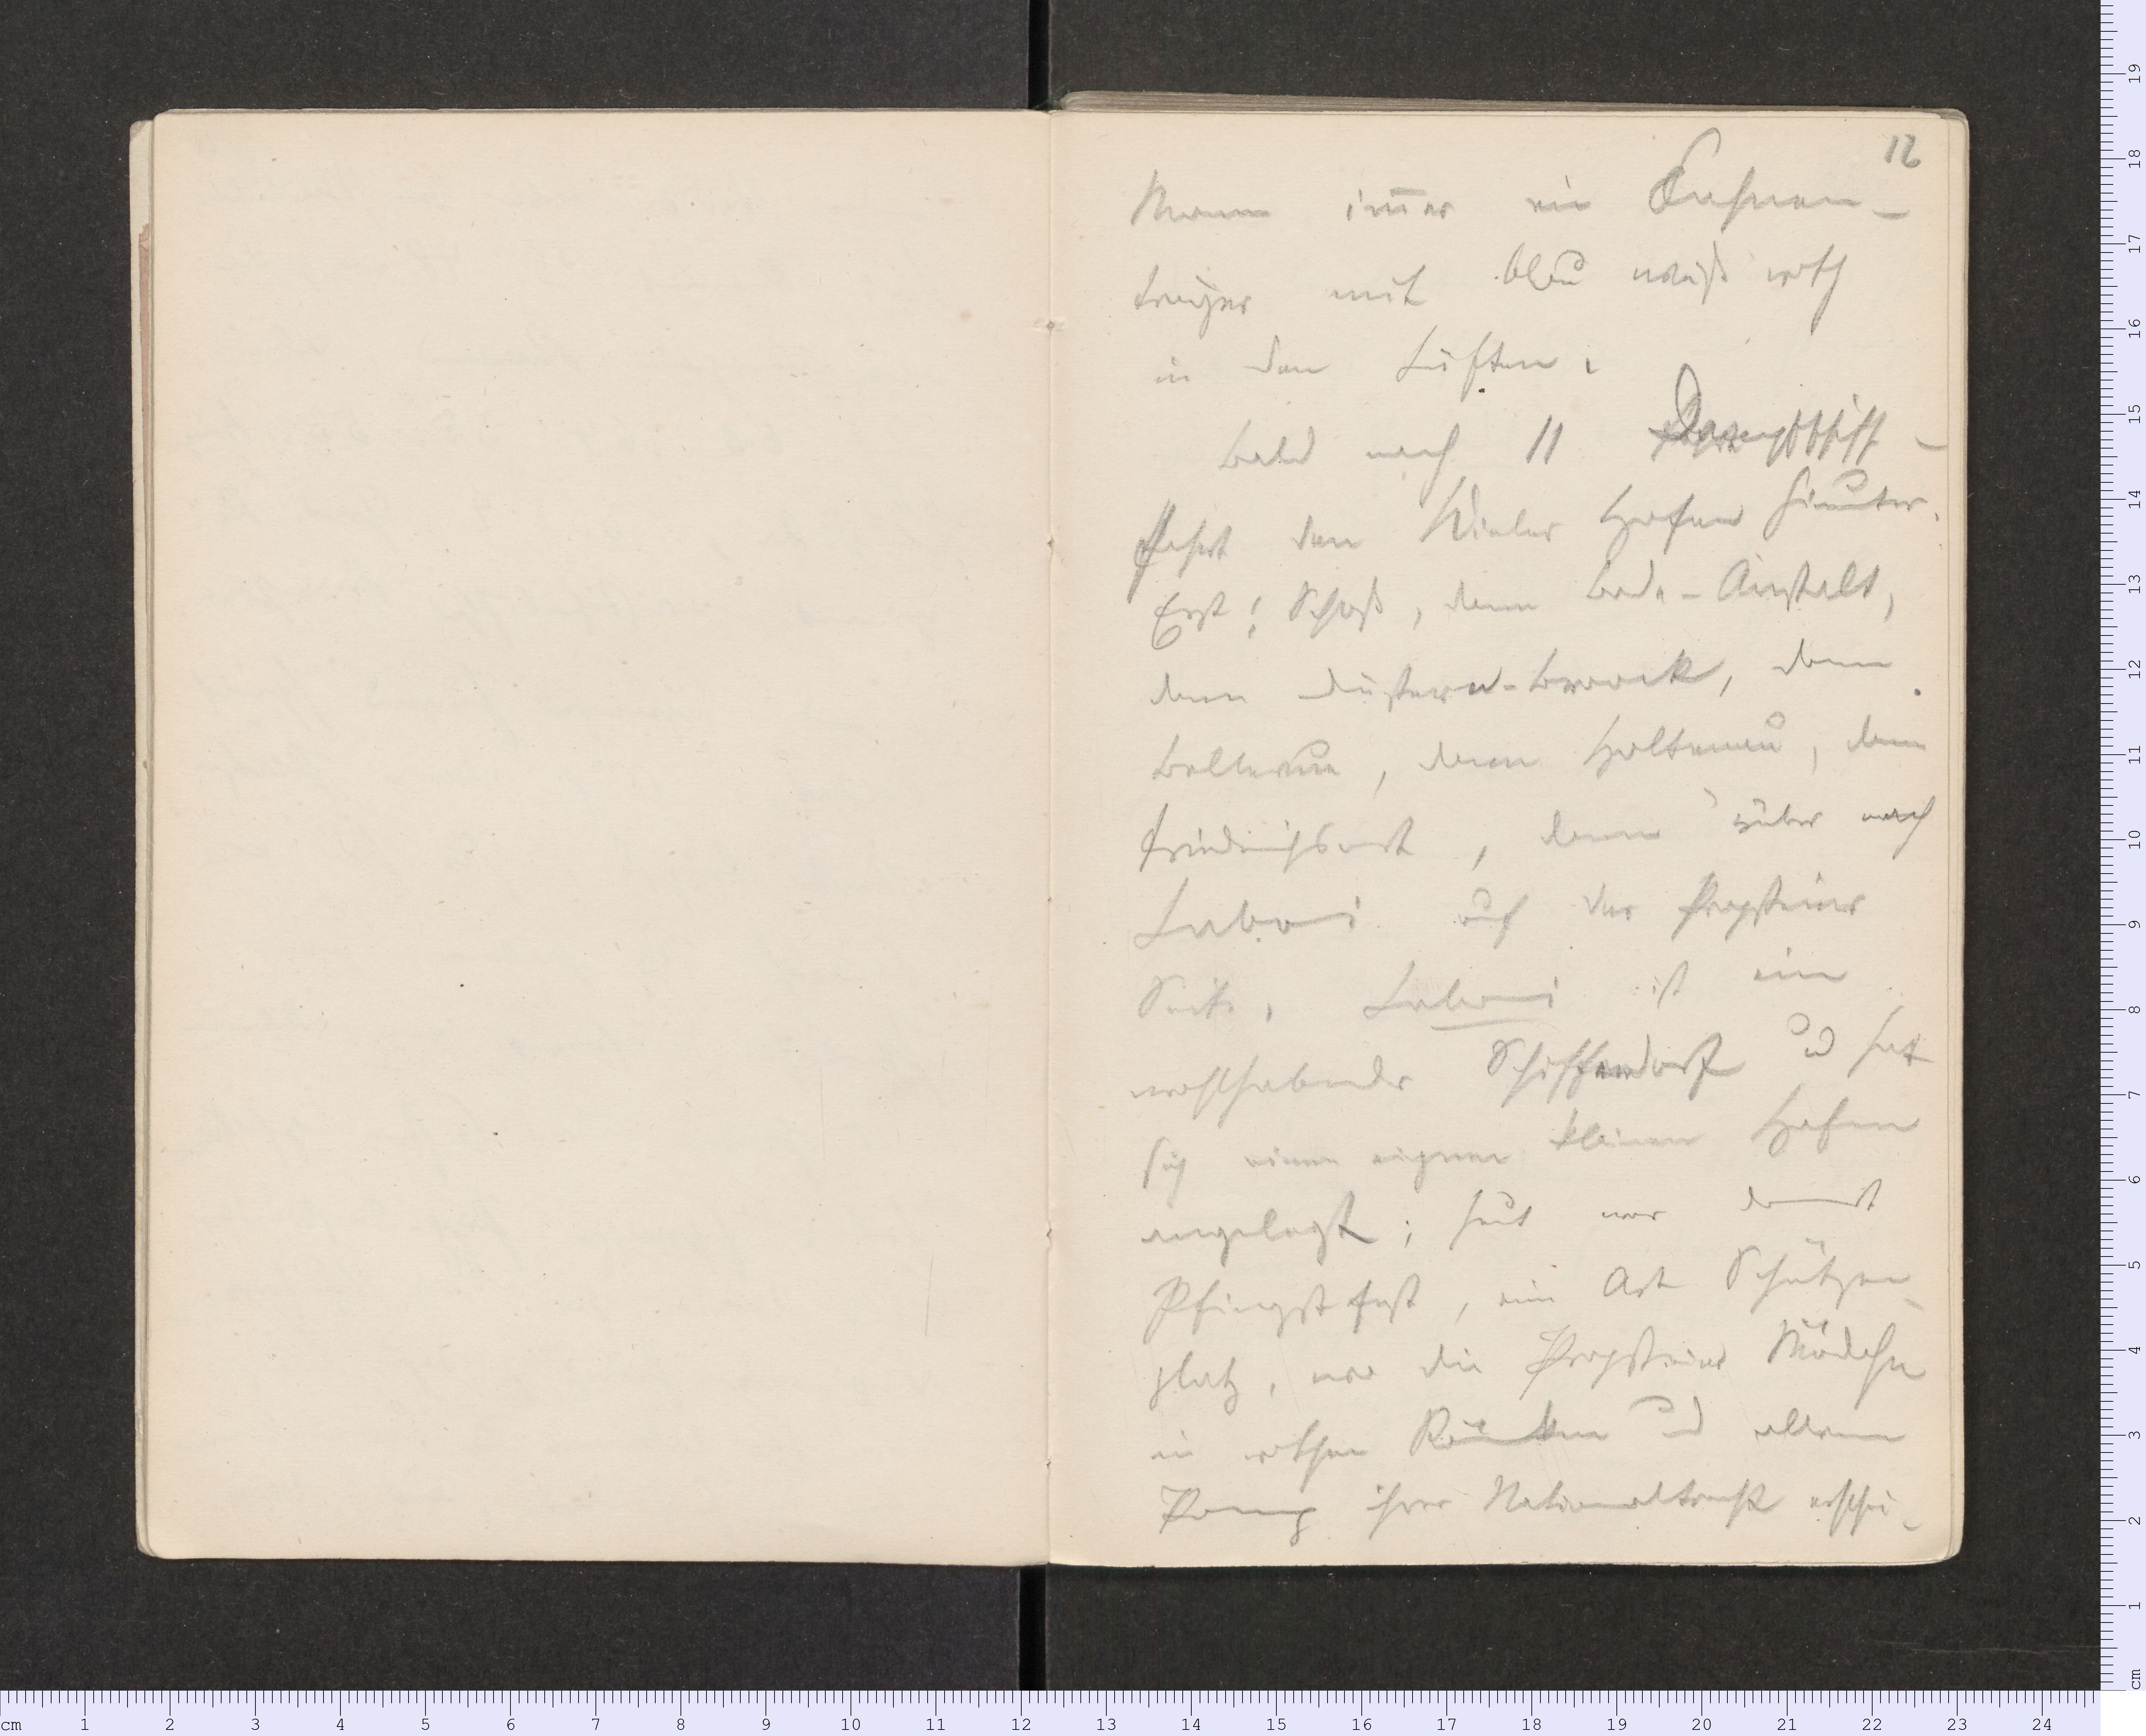 12
Mann im̅er ein Fahnen-
träger mit blau weiß roth
in den Lüften.
Bald nach 11 Dampfschiff-
fahrt den Kieler Hafen hinunter.
Erst: Schloß, dann Bade-Anstalt,
dann Düstern-Broock, dann
Bellevue, dann Holtenau, dann
Friedrichsort, dann rüber nach
Laboei auf der Propsteier
Seite. Laboei ist ein
wohlhabendes Schifferdorf und hat
sich einen eignen kleinen Hafen
angelegt; heut war damit
Pfingstfest, eine Art Schützen-
platz, wo die Propsteier Mädchen
in rothen Röcken und allem
Pomp ihrer Nationaltracht erschie-